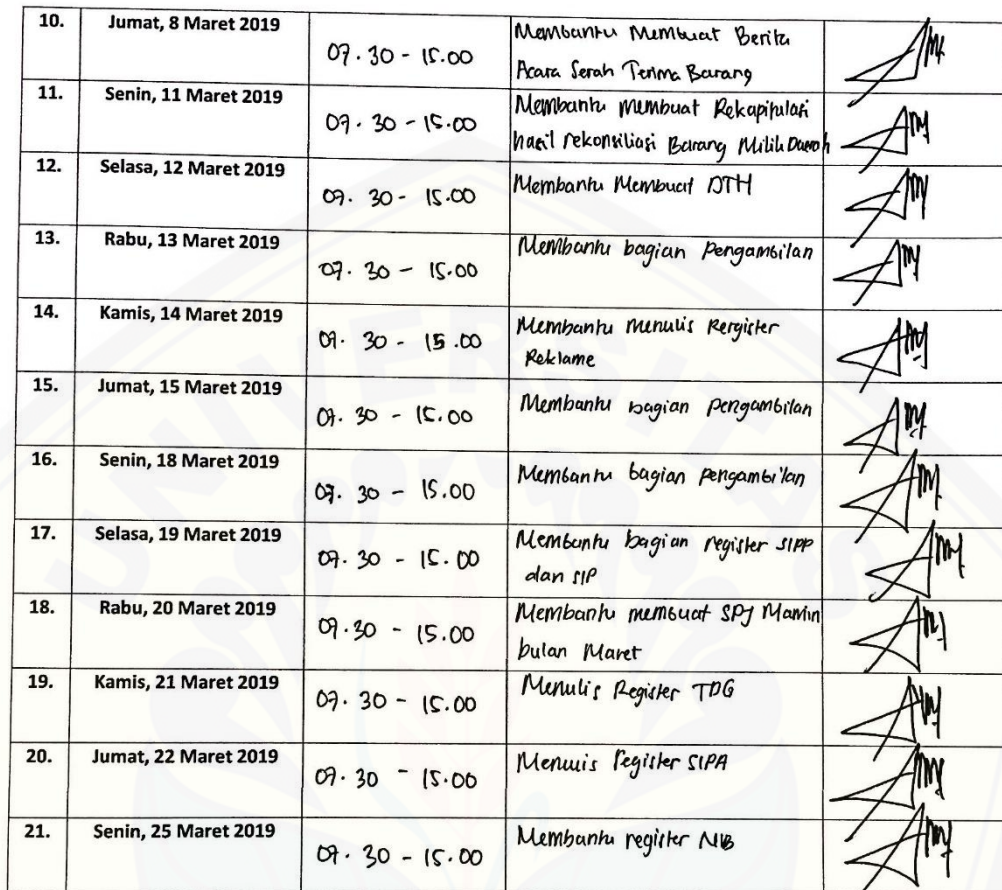 10. Jumat, 8 Maret 2019 07.30 - 15.00 Membantu Membuat Berita
Acara Serah Terima Barang
11. Senin, 11 Maret 2019 07.30 - 15.00 Membantu membuat Rekapitulasi
hasil rekonsiliasi Barang Milik Daerah
12. Selasa, 12 Maret 2019 07.30 - 15.00 Membantu Membuat DTH
13. Rabu, 13 Maret 2019 07.30 - 15.00 Membantu bagian Pengambilan
14. Kamis, 14 Maret 2019 07.30 - 15.00 Membantu menulis Rergister
Reklame
15. Jumat, 15 Maret 2019 07.30 - 15.00 Membantu bagian pengambilan
16. Senin, 18 Maret 2019 07.30 - 15.00 Membantu bagian pengambilan
17. Selasa, 19 Maret 2019 07.30 - 15.00 Membantu bagian register SIPP
dan SIP
18. Rabu, 20 Maret 2019 07.30 - 15.00 Membantu membuat SPJ Mamin
bulan Maret
19. Kamis, 21 Maret 2019 07.30 - 15.00 Menulis Register TDG
20. Jumat, 22 Maret 2019 07.30 - 15.00 Menulis register SIPA
21. Senin, 25 Maret 2019 07.30 - 15.00 Membantu register NIB
UNIVERSITAS